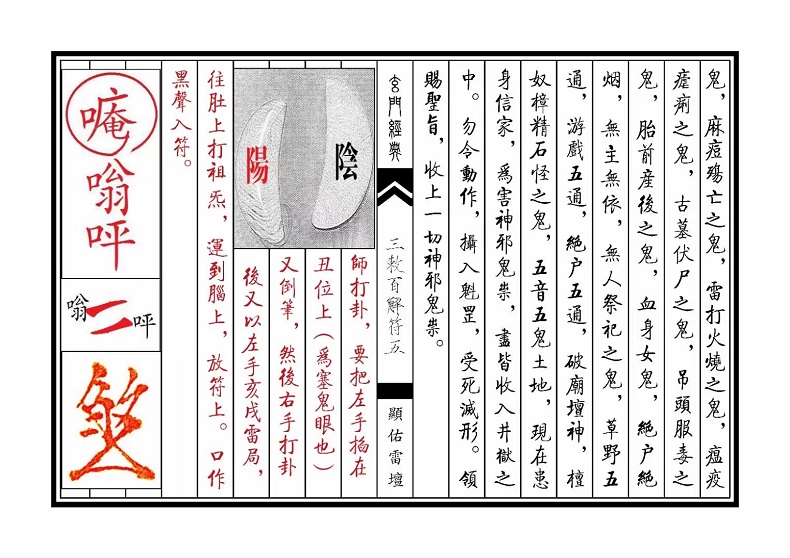 鬼，麻痘殤亡之鬼，雷打火燒之鬼，瘟疫
瘧痢之鬼，古墓伏尸之鬼，吊頭服毒之
鬼，胎前產後之鬼，血身女鬼，絕户絕
烟，無主無依，無人祭祀之鬼，草野五
通，游戲五通，絕户五通，破廟壇神，檀
奴樟精石怪之鬼，五音五鬼土地，現在患
身信家，爲害神邪鬼祟，盡皆收入井獄之
中。勿令動作，攝入魁罡，受死滅形。領
賜聖旨，收上一切神邪鬼祟。
玄門經典
三教百解符五
顯佑雷壇
陰
陽
師打卦，要把左手搯在
丑位上（爲塞鬼眼也）
又倒筆，然後右手打卦
後又以左手亥戌雷局，
往肚上打祖炁，運到腦上，放符上。口作
黑聲入符。
唵
嗡
呼
嗡
二
呼